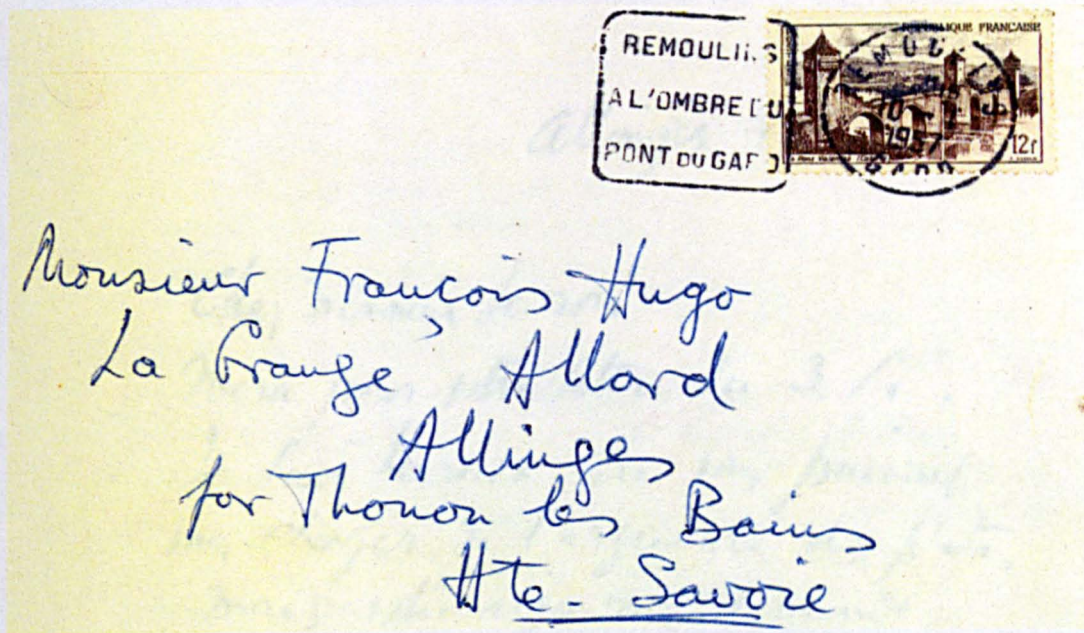 REMOULINS
A L'OMBRE DU
PONT DU GARD
REPUBLIQUE FRANÇAISE
12F
REMOULINS
10
1957
GARD
Monsieur François Hugo
La Grange Allard
Allinges
par Thonon les Bains
Hte Savoie